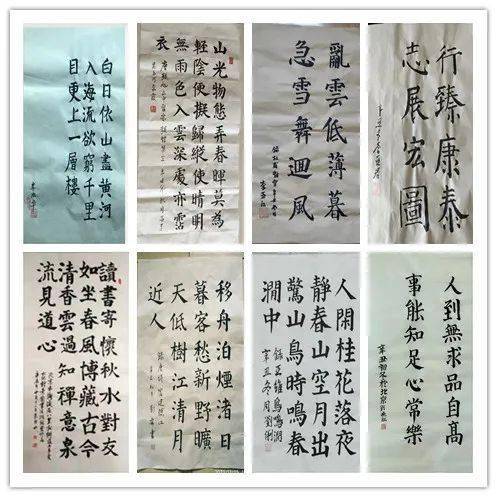 白日依山盡黃河
入海流欲窮千里
目更上一層樓
山光物態弄春暉莫為
輕陰便擬歸縱使晴明
無雨色入雲深處亦霑
衣
亂雲低薄暮
急雪舞迴風
行臻康泰
志展宏圖
讀書寄懷秋水對友
如坐春風博藏古今
清香雲過知禪意泉
流見道心
移舟泊煙渚日
暮客愁新野曠
天低樹江清月
近人
人閑桂花落夜
靜春山空月出
驚山鳥時鳴春
澗中
錄王維鳥鳴澗
辛丑冬月劉俐
人到無求品自高
事能知足心常樂
辛丑初冬於北京